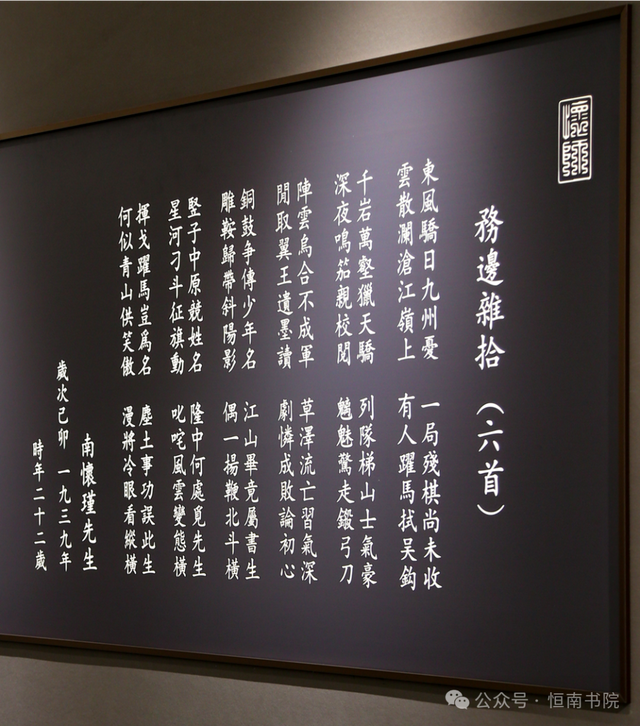 懷師
務邊雜拾（六首）
東風驕日九州憂 一局殘棋尚未收
雲散瀾滄江嶺上 有人躍馬拭吳鈎
千岩萬壑獵天驕 列隊梯山士氣豪
深夜鳴笳親校閱 魑魅驚走鍛弓刀
陣雲烏合不成軍 草澤流亡習氣深
閒取翼王遺墨讀 劇憐成敗論初心
銅鼓爭傳少年名 江山畢竟屬書生
雕鞍歸帶斜陽影 偶一揚鞭北斗橫
竪子中原競姓名 隆中何處覓先生
星河刁斗征旗動 叱咤風雲變態橫
揮戈躍馬豈為名 塵土事功誤此生
何似青山供笑傲 漫將冷眼看縱橫
南懷瑾先生
歲次己卯 一九三九年
時年二十二歲
公众号·恒南书院